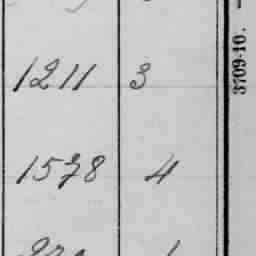 1211 3
1578 4
3709-10.